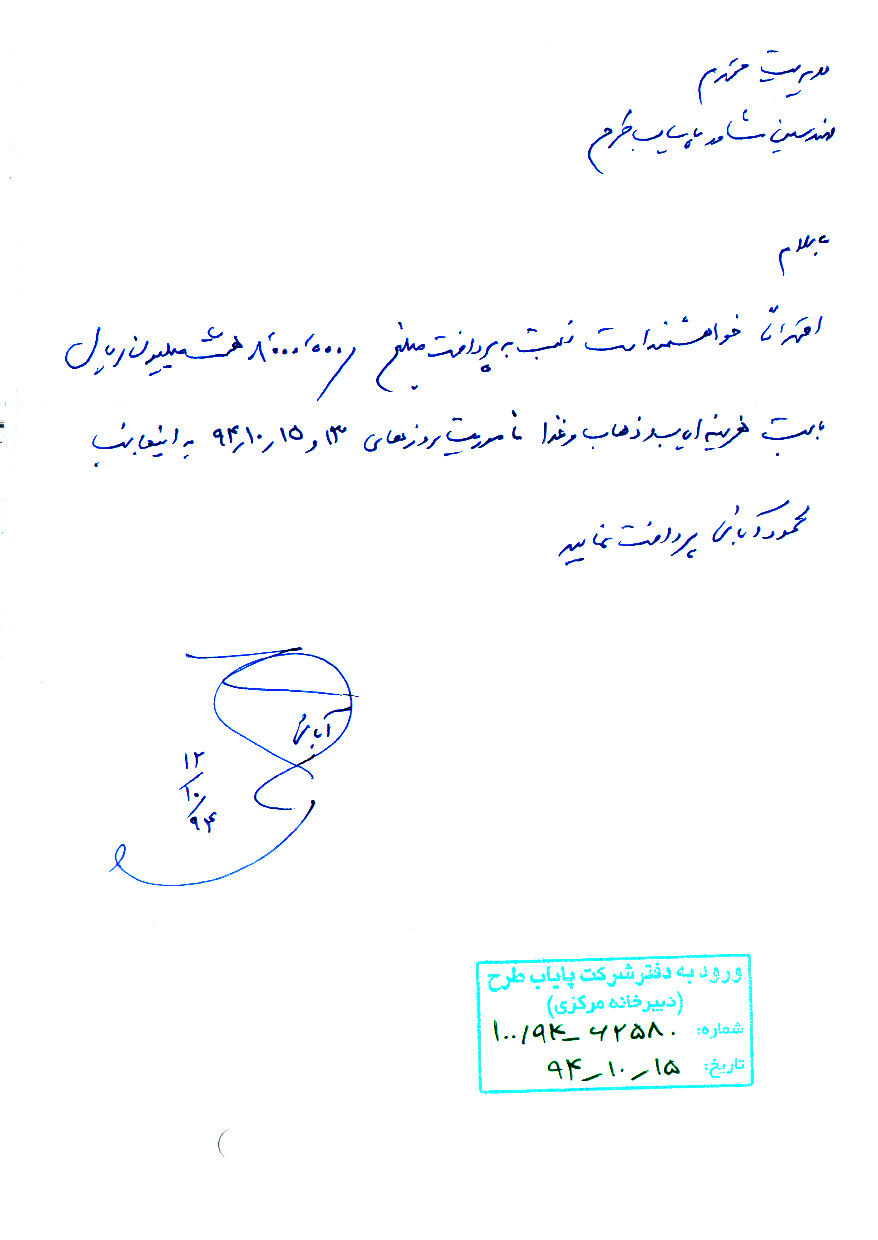 مدیریت محترم
مهندسین مشاور پایاب طرح
با سلام
احتراماً خواهشمند است نسبت به پرداخت مبلغ ۸،۰۰۰،۰۰۰ هشت میلیون ریال
بابت هزینه ایاب و ذهاب و غذا مأموریت روزهای ۱۳ و ۹۴٫۱۰٫۱۵ به اینجانب
محمود آبائی پرداخت نمایید
آبائی
۱۲
۱۰
۹۴
ورود به دفتر شرکت پایاب طرح
(دبیرخانه مرکزی)
شماره: ۱۰۰/۹۴_۶۲۵۸۰
تاریخ: ۹۴_۱۰_۱۵